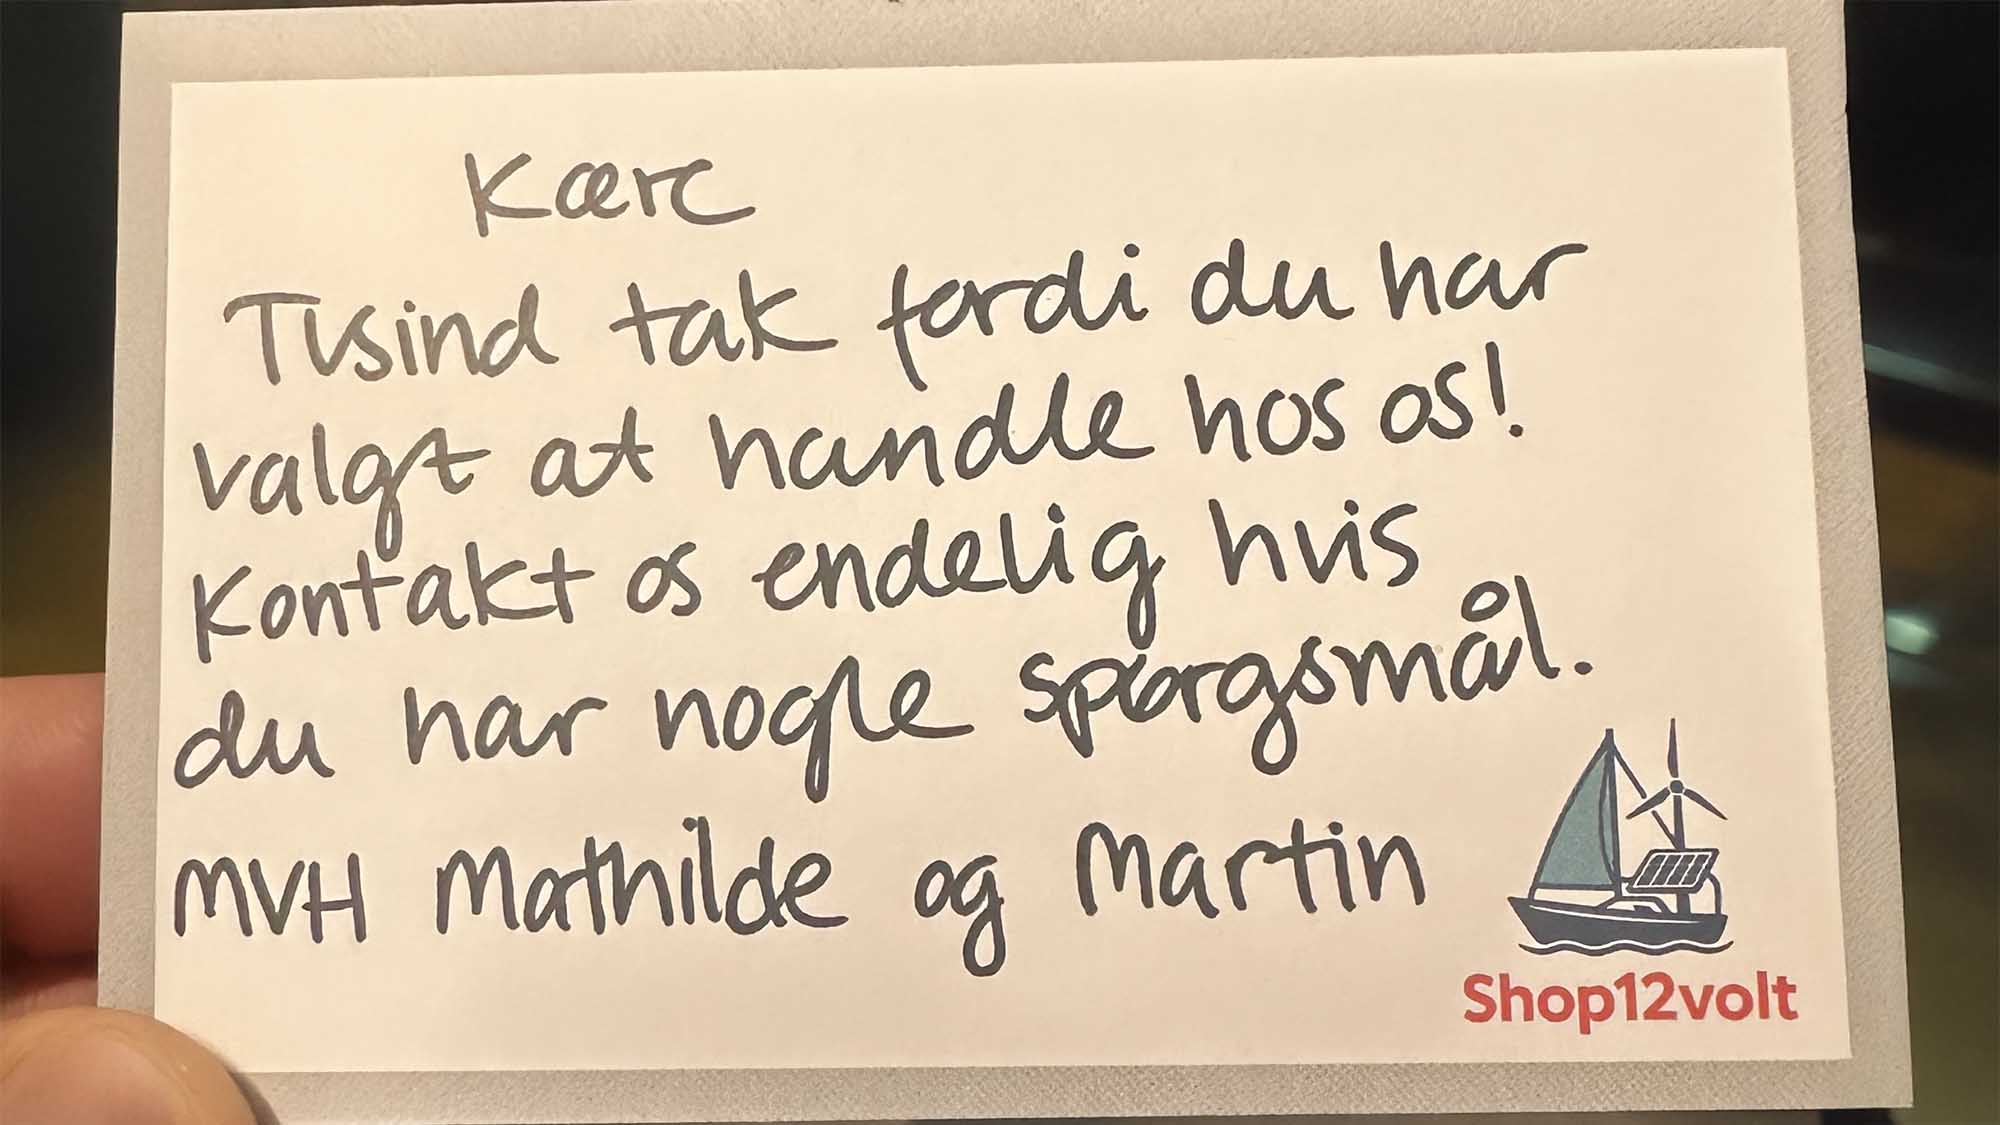 Kære
Tusind tak fordi du har
valgt at handle hos os!
Kontakt os endelig hvis
du har nogle spørgsmål.
MVH Mathilde og Martin
Shop12volt